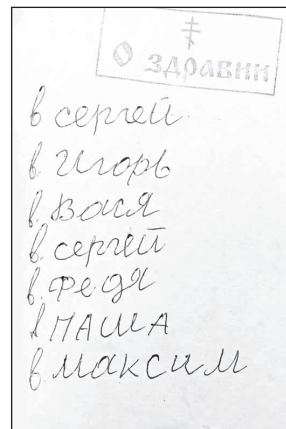 О ЗДРАВИИ
в сергей
в. Игорь
в. Вася
в. сергей
в. Федя
в ПАША
в. Максим